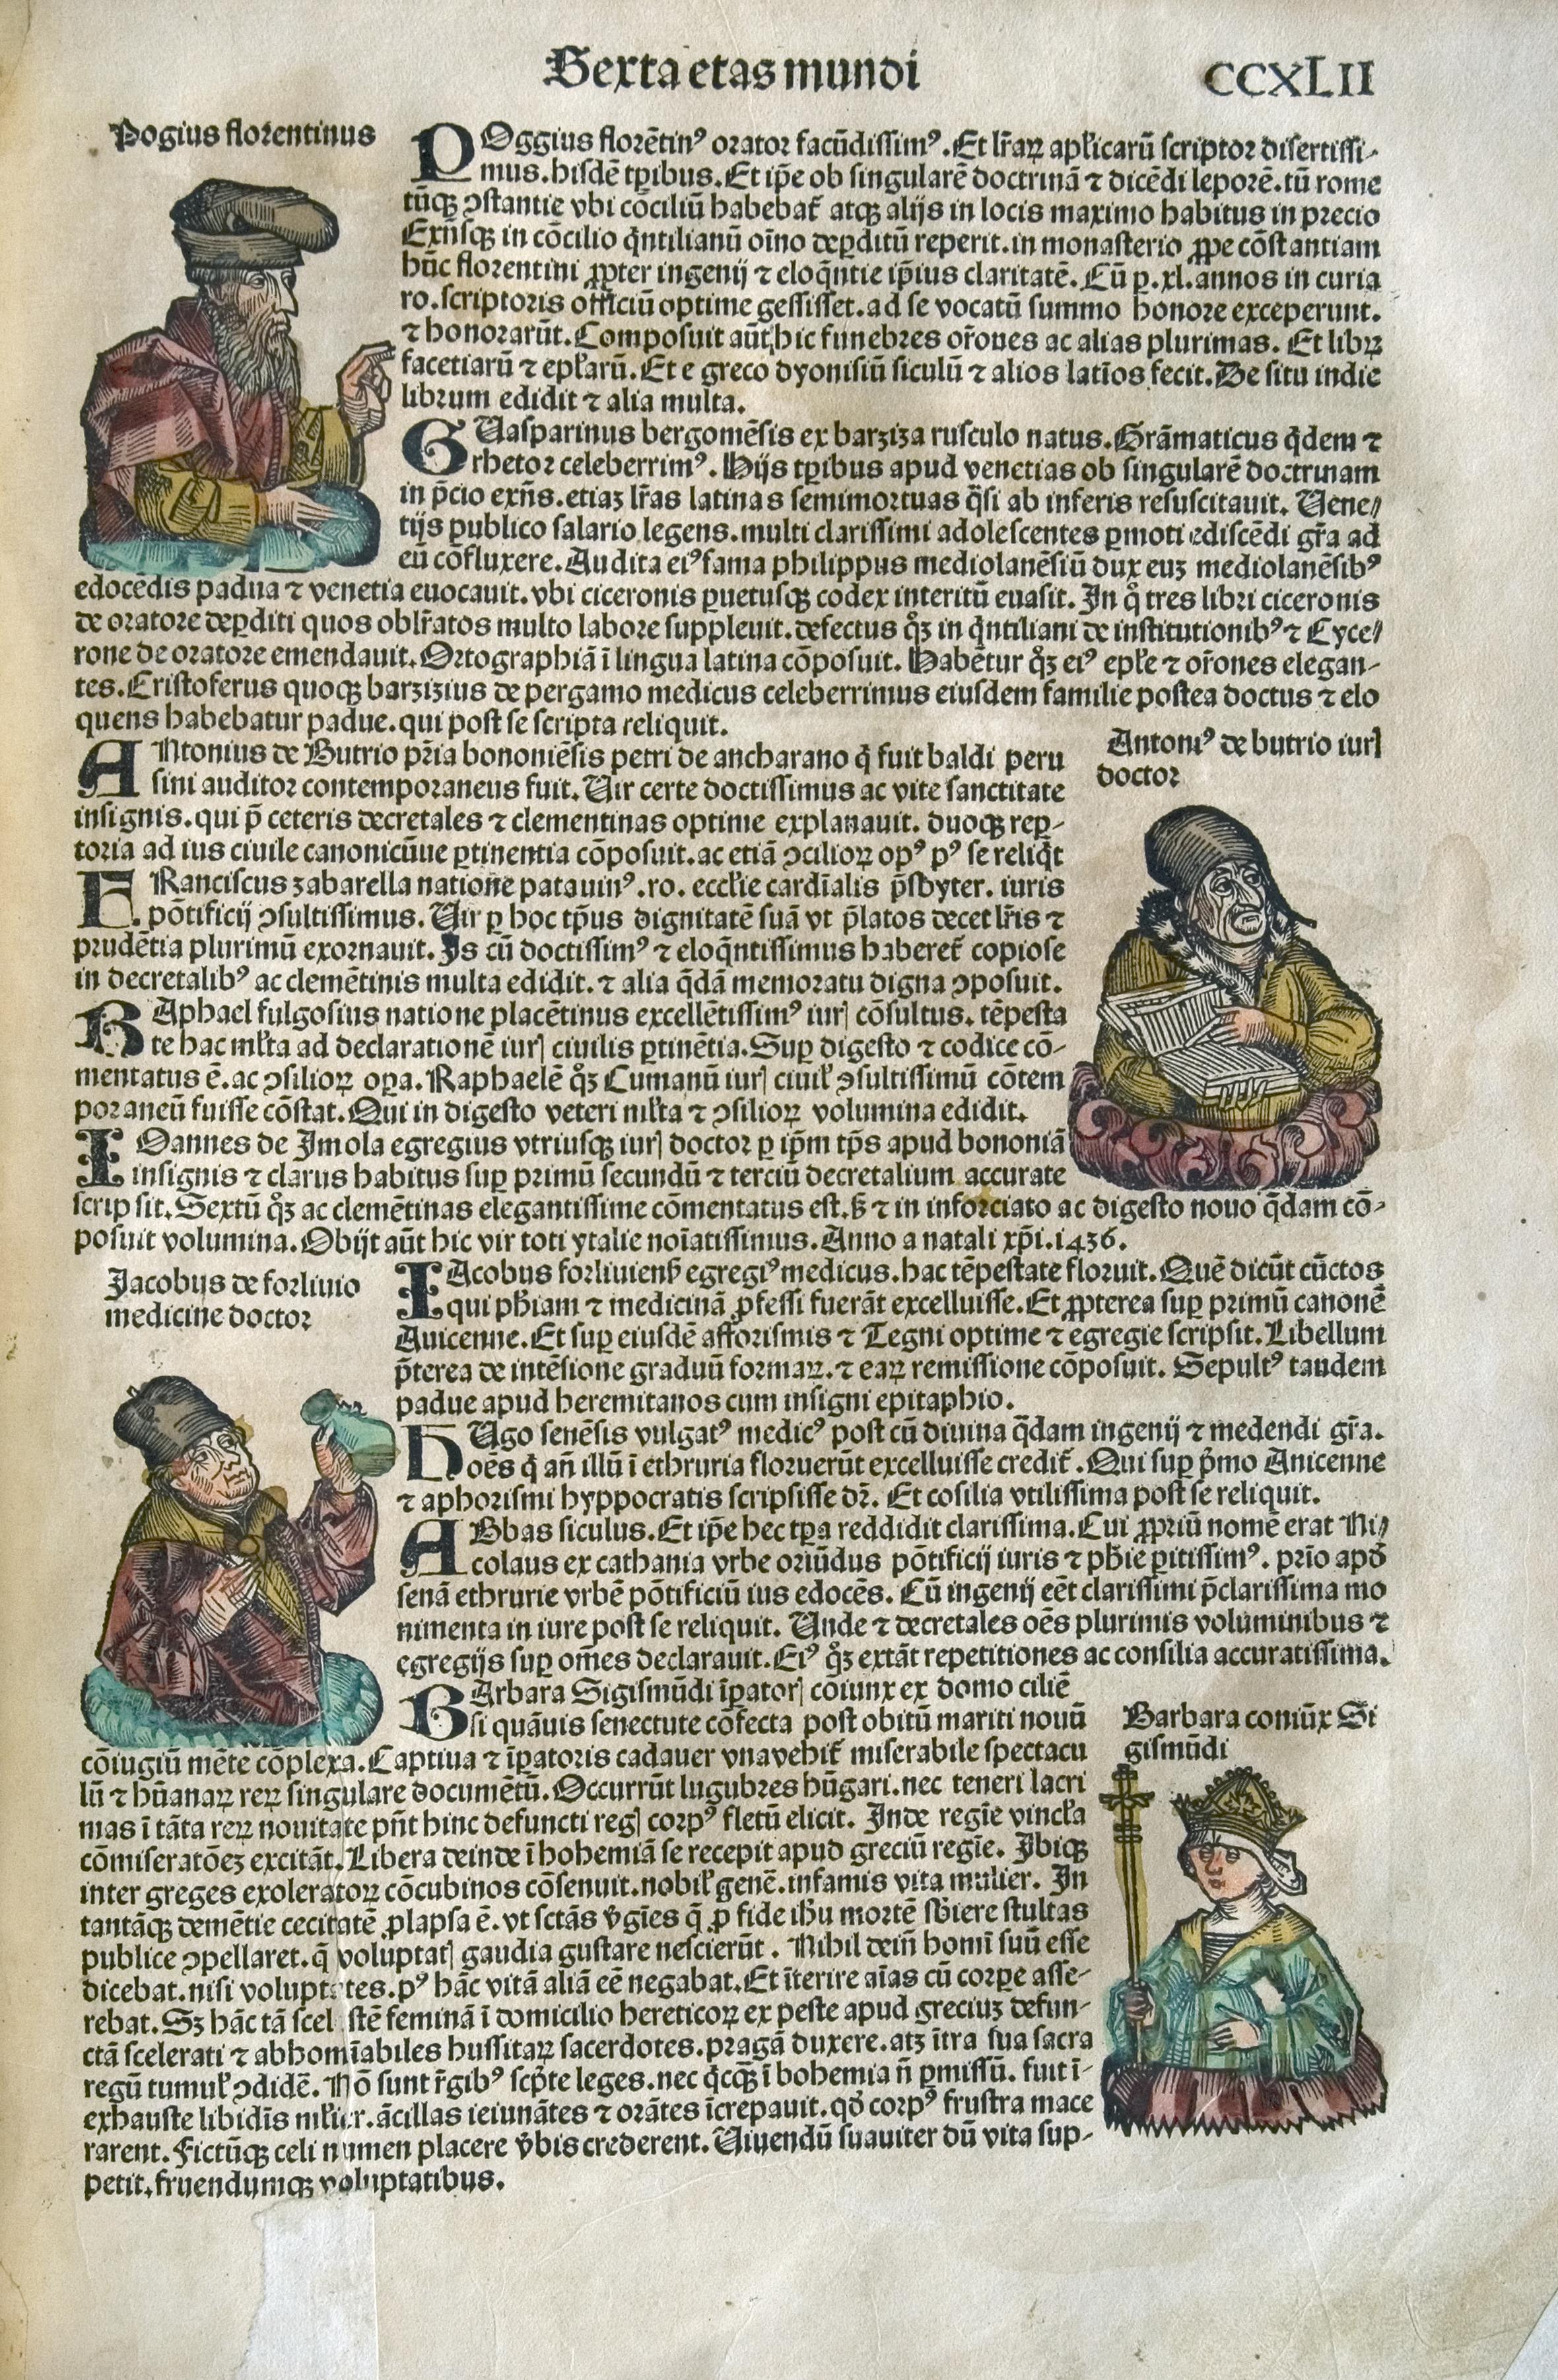 Sexta etas mundi
CCXLII
Pogius florentinus
POggius florētinꝰ orator facūdissimꝰ. Et lr̄aꝝ apl̄icarū scriptor disertissi-
mus. hisdē tꝑibus. Et ip̄e ob singularē doctrinā ⁊ dicēdi leporē. tū rome
tūcqꝫ ꝯstantie vbi cōciliū habebat̄ atqꝫ alijs in locis maximo habitus in precio
Exn̄sqꝫ in cōcilio q̄ntilianū oīno deꝑditū reperit. in monasterio ꝓpe cōstantiam
hūc florentini ꝓpter ingenij ⁊ eloq̄ntie ip̄ius claritatē. Cū ꝑ. xl. annos in curia
ro. scriptoris officiū optime gessisset. ad se vocatū summo honore exceperunt.
⁊ honorarūt. Composuit aūt hic funebres or̄ones ac alias plurimas. Et libꝝ
facetiarū ⁊ epl̄arū. Et e greco dyonisiū siculū ⁊ alios latīos fecit. De situ indie
librum edidit ⁊ alia multa.
GUasparinus bergomēsis ex barziza rusculo natus. Grāmaticus q̇dem ⁊
rhetor celeberrimꝰ. Hijs tꝑibus apud venetias ob singularē doctrinam
in p̄cio exn̄s. etiaꝫ lr̄as latinas semimortuas q̄si ab inferis resuscitauit. Uene/
tijs publico salario legens. multi clarissimi adolescentes ꝑmoti ediscēdi gr̄a ad
eū cōfluxere. Audita eiꝰ fama philippus mediolanēsiū dux euꝫ mediolanēsibꝰ
edocēdis padua ⁊ venetia euocauit. vbi ciceronis ꝑuetusqꝫ codex interitū euasit. In q̊ tres libri ciceronis
de oratore deꝑditi quos oblr̄atos multo labore suppleuit. defectus q̊ꝫ in q̄ntiliani de institutionibꝰ ⁊ Cyce/
rone de oratore emendauit. Ortographiā ī lingua latina cōposuit. Habētur q̊ꝫ eiꝰ epl̄e ⁊ or̄ones elegan-
tes. Cristoferus quoqꝫ barzizius de pergamo medicus celeberrimus eiusdem familie postea doctus ⁊ elo
quens habebatur padue. qui post se scripta reliquit.
Antoniꝰ de butrio iurꝭ
doctor
ANtonius de Butrio pr̄ia bononiēsis petri de ancharano q̇ fuit baldi peru
sini auditor contemporaneus fuit. Uir certe doctissimus ac vite sanctitate
insignis. qui p̄ ceteris decretales ⁊ clementinas optime explanauit. duoqꝫ reꝑ-
toria ad ius ciuile canonicūue ꝑtinentia cōposuit. ac etiā ꝯcilioꝝ opꝰ pꝰ se reliq̇t
FRanciscus zabarella natione patauinꝰ. ro. eccl̄ie cardīalis p̄sbyter. iuris
pōtificij ꝯsultissimus. Uir ꝑ hoc tp̄us dignitatē suā vt p̄latos decet lr̄is ⁊
prudētia plurimū exornauit. Is cū doctissimꝰ ⁊ eloq̄ntissimus haberet̄ copiose
in decretalibꝰ ac clemētinis multa edidit. ⁊ alia q̄dā memoratu digna ꝯposuit.
RAphael fulgosius natione placētinus excellētissimꝰ iurꝭ cōsultus. tēpesta
te hac ml̄ta ad declarationē iurꝭ ciuilis ꝑtinētia. Suꝑ digesto ⁊ codice cō-
mentatus ē. ac ꝯsilioꝝ oꝑa. Raphaelē q̊ꝫ Cumanū iurꝭ ciuil̄ ꝯsultissimū cōtem
poraneū fuisse cōstat. Qui in digesto veteri ml̄ta ⁊ ꝯsilioꝝ volumina edidit.
IOannes de Imola egregius vtriusqꝫ iurꝭ doctor ꝑ ip̄m tp̄s apud bononiā
insignis ⁊ clarus habitus suꝑ primū secundū ⁊ terciū decretalium accurate
scrip sit. Sextū q̊ꝫ ac clemētinas elegantissime cōmentatus est. sꝫ ⁊ in inforciato ac digesto nouo q̄dam cō-
posuit volumina. Obijt aūt hic vir toti ytalie noīatissimus. Anno a natali xp̄i. 1436.
Jacobus de forliuio
medicine doctor
IAcobus forliuiens̄ egregiꝰ medicus. hac tēpestate floruit. Quē dicūt cūctos
qui ph̄iam ⁊ medicinā ꝓfessi fuerāt excelluisse. Et ꝓpterea suꝑ primū canonē
Auicenne. Et suꝑ eiusdē afforismis ⁊ Tegni optime ⁊ egregie scripsit. Libellum
p̄terea de intēsione graduū formaꝝ. ⁊ eaꝝ remissione cōposuit. Sepultꝰ tandem
padue apud heremitanos cum insigni epitaphio.
HUgo senēsis vulgatꝰ medicꝰ post cū diuina q̄dam ingenij ⁊ medendi gr̄a.
oēs q̇ an̄ illū ī ethruria floruerūt excelluisse credit̄. Qui suꝑ p̄mo Auicenne
⁊ aphorismi hyppocratis scripsisse dr̄. Et cōsilia vtilissima post se reliquit.
ABbas siculus. Et ip̄e hec tꝑa reddidit clarissima. Cui ꝓpriū nomē erat Ni/
colaus ex cathania vrbe oriūdus pōtificij iuris ⁊ ph̄ie ꝑitissimꝰ. prīo apd̄
senā ethrurie vrbē pōtificiū ius edocēs. Cū ingenij eēt clarissimi p̄clarissima mo
nimenta in iure post se reliquit. Unde ⁊ decretales oēs plurimis voluminibus ⁊
egregijs suꝑ om̄es declarauit. Eiꝰ q̊ꝫ extāt repetitiones ac consilia accuratissima.
BArbara Sigismūdi īꝑatorꝭ cōiunx ex domo ciliē
si quāuis senectute cōfecta post obitū mariti nouū
Barbara coniūx Si
gismūdi
cōiugiū mēte cōplexa. Captiua ⁊ īꝑatoris cadauer vnavehit̄ miserabile spectacu
lū ⁊ hūanaꝝ reꝝ singulare documētū. Occurrūt lugubres hūgari. nec teneri lacri
mas ī tāta reꝝ nouitate pn̄t hinc defuncti regꝭ corpꝰ fletū elicit. Inde regīe vincl̄a
cōmiseratōeꝫ excitāt. Libera deinde ī bohemiā se recepit apud greciū regīe. Ibiqꝫ
inter greges exoleratoꝝ cōcubinos cōsenuit. nobil̄ genē. infamis vita mulier. In
tantāqꝫ demētie cecitatē ꝓlapsa ē. vt sctās v̄gīes q̄ ꝓ fide ih̄u mortē sb̄iere stultas
publice ꝯpellaret. q̄ voluptatꝭ gaudia gustare nescierūt. Nihil dein̄ homī suū esse
dicebat. nisi voluptates. pꝰ hāc vitā aliā eē negabat. Et īterire aīas cū corꝑe asse-
rebat. Sꝫ hāc tā scel stē feminā ī domicilio hereticoꝝ ex peste apud greciuꝫ defun-
ctā scelerati ⁊ abhomīabiles hussitaꝝ sacerdotes. pragā duxere. atꝫ ītra sua sacra
regū tumul̄ ꝯdidē. Nō sunt r̄gibꝰ scp̄te leges. nec q̇cqꝫ ī bohemia n̄ ꝑmissū. fuit ī-
exhauste libidīs ml̄ier. ācillas ieiunātes ⁊ orātes īcrepauit. qd̄ corpꝰ frustra mace
rarent. Fictūqꝫ celi numen placere v̄bis crederent. Uiuendū suauiter dū vita sup-
petit. fruendumqꝫ voluptatibus.